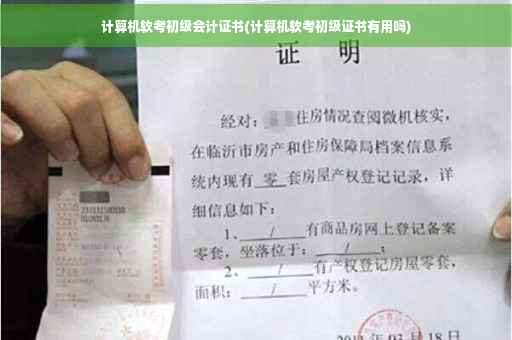 计算机软考初级会计证书(计算机软考初级证书有用吗)
证 明
经对：住房情况查阅微机核实，
在临沂市房产和住房保障局档案信息系
统内现有 零 套房屋产权登记记录，详
细信息如下：
1、 / 有商品房网上登记备案
零套，坐落位于： / ；
2、 / 有产权登记房屋零套，
面积： / 平方米。
月18日